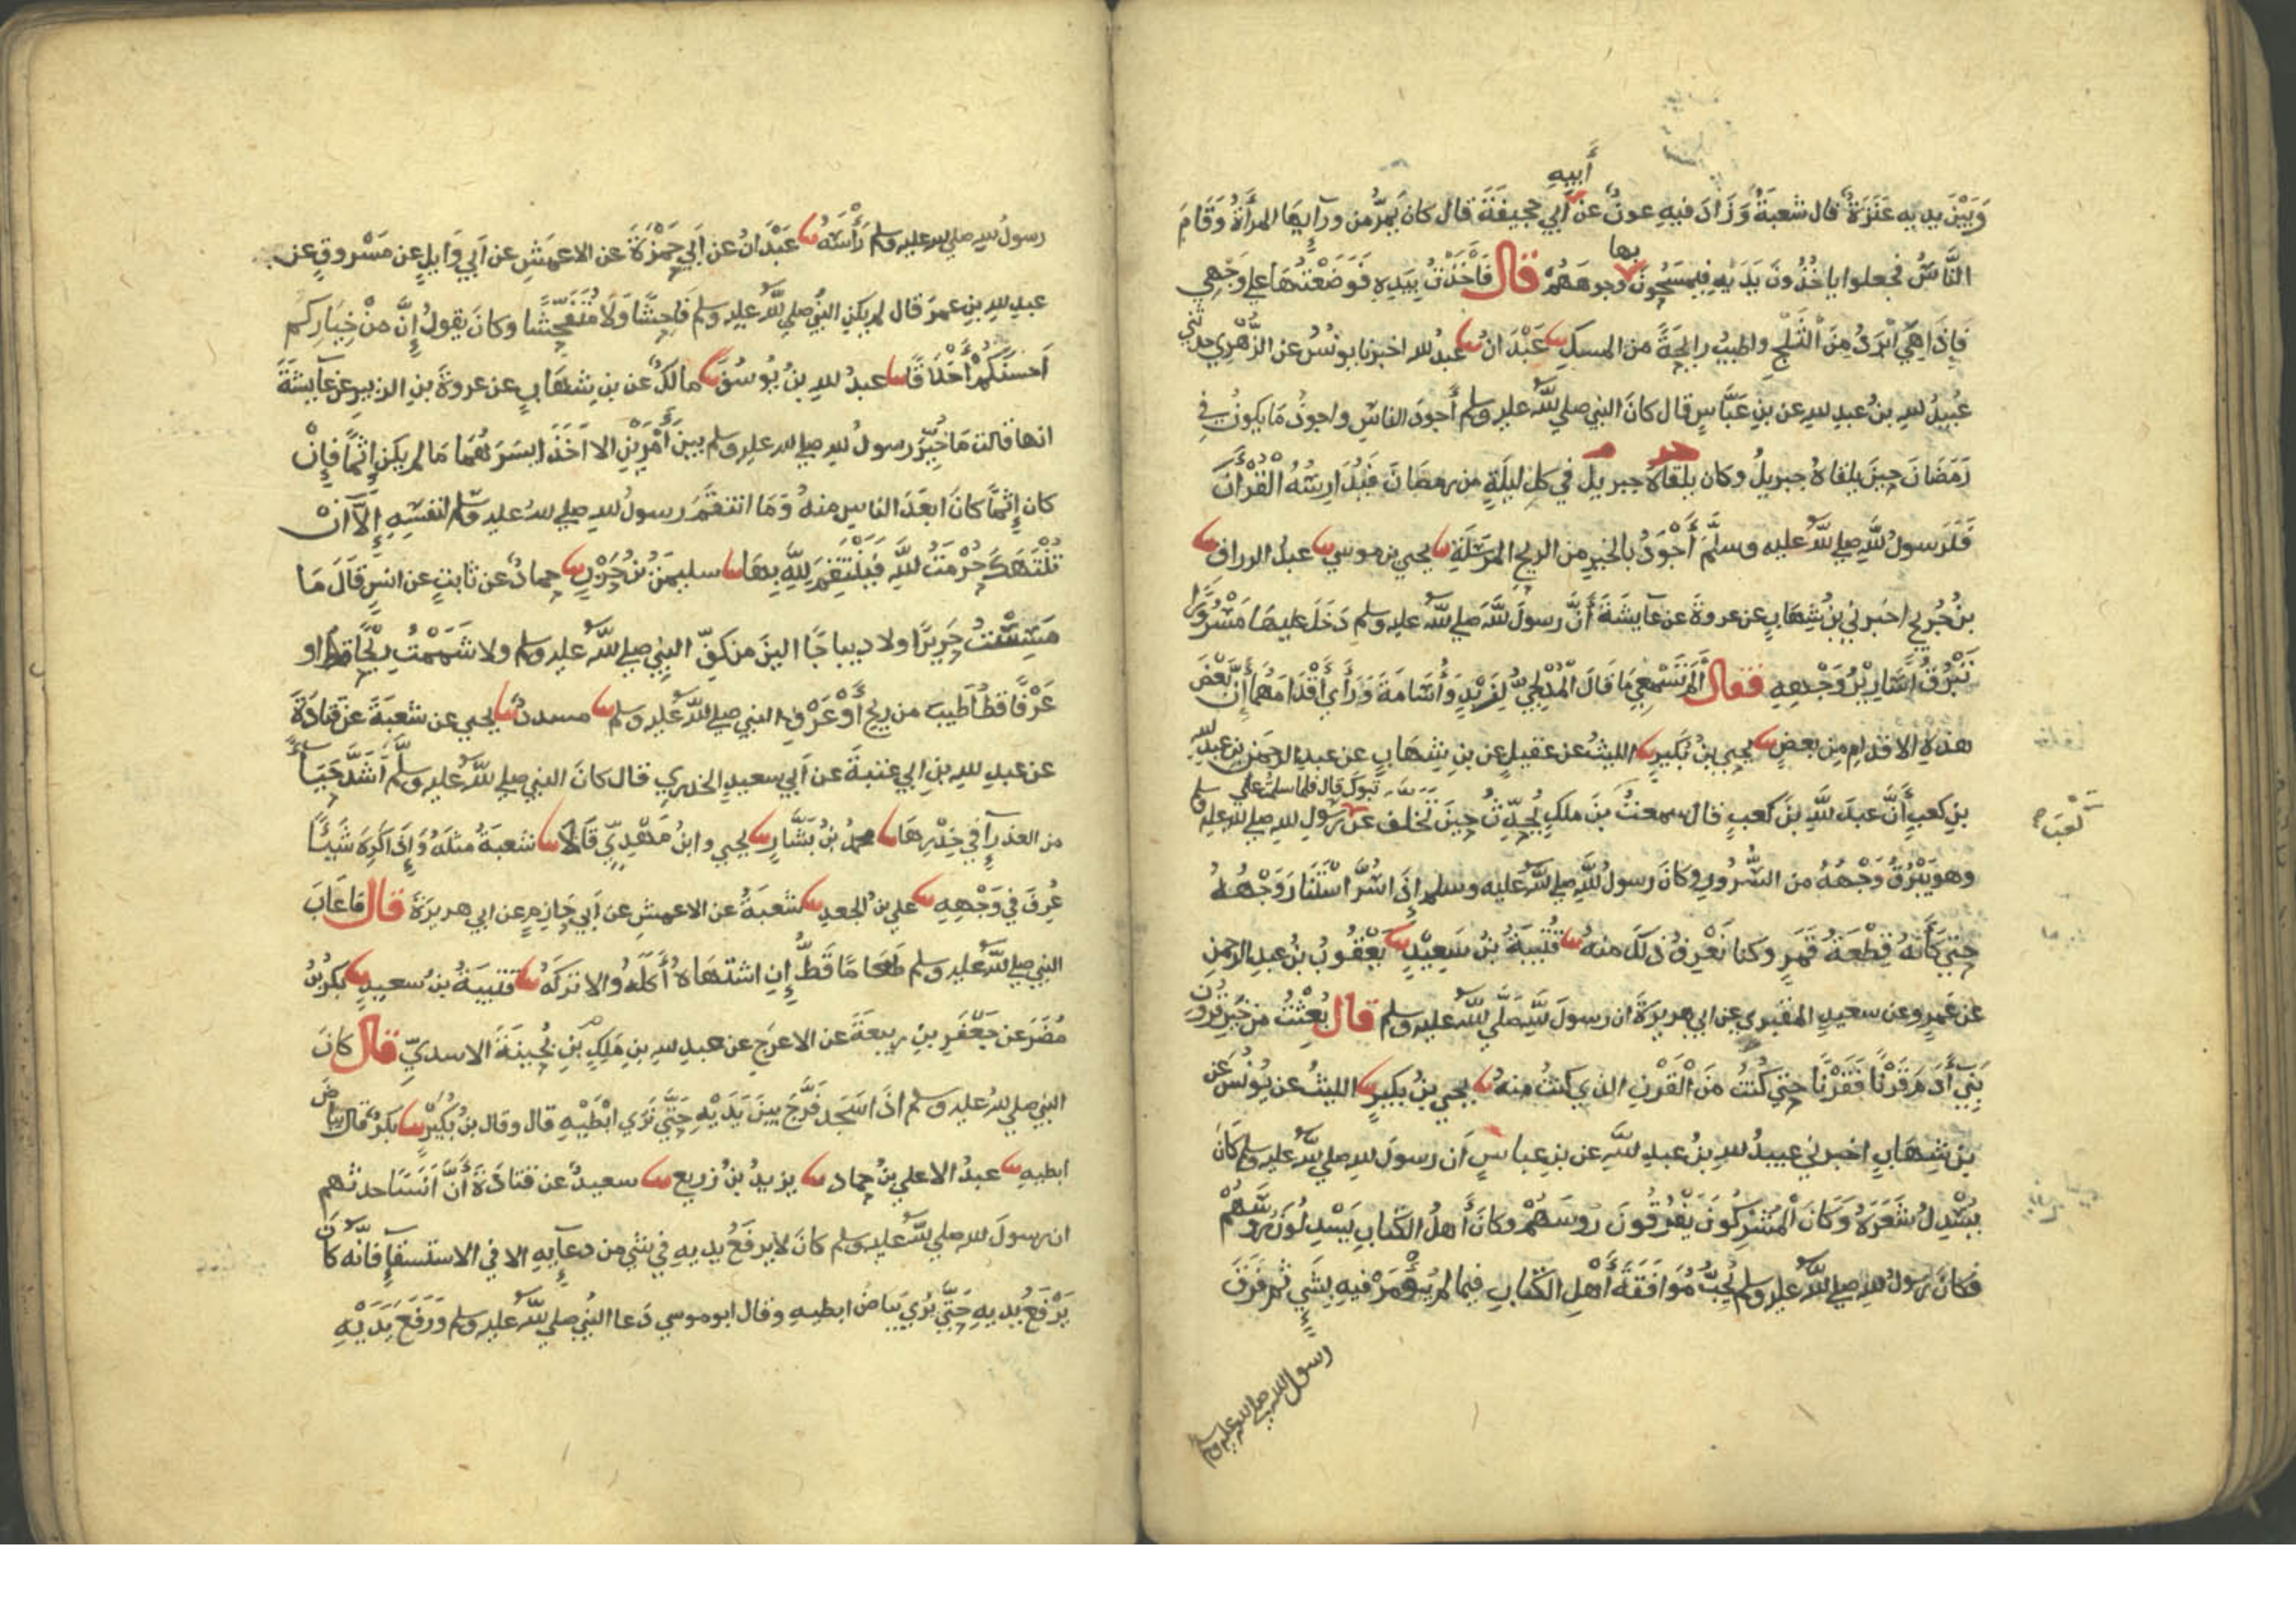 أبيه
وَبَيْنَ يديه عَنَزَةٌ قال شعبَةُ وَزَادَ فيهِ عونٌ عن أبي جحيفَةَ قال كان يَمرُّ من ورآيِهَا المرأَةُ وَقَامَ
بها
النَّاسُ فجعلوا ياخُذُونَ يَدَيْهِ فيمسَحُونَ وجوهَهُمْ قال فَأَخَذْتُ بِيَدِهِ فَوَضَعْتُهَا علي وَجْهِي
فَإذَا هِيَ ابْرَدُ مِنَ الثَّلْجِ واطيبُ رايحَةً من المسكِ نا عَبْدَانُ نا عبدُ لله اخبرنا يونُسُ عن الزُّهْرِي حدثني
عُبيدُ لله بنُ عبدِ لله عن بنِ عَبَّاسٍ قال كانَ النبي صلي لله عليه وسلم أجودَ الناسِ واجودُ مَا يكونُ في
رَمَضَانَ حِينَ يلقاهُ جبريلُ وكان يلقاهُ جبريلُ في كل ليلَةٍ من رمضَانَ فَيُدَارِسُهُ القُرْأنَ
فَلَرَسولُ للَّه صلي لله عليه وسلَّمَ أَجْوَدُ بالخيرِ من الريحِ المرسَلَةِ نا يحيي بن موسي نا عبدُ الرزاق نا
بنُ جُرَيجٍ اخبرني بنُ شِهَابٍ عن عروةَ عن عايشَةَ أنَّ رسولَ للَّه صلي لله عليه وسلم دَخَلَ عليهَا مَسْرُورًا
تَبْرُقُ اسَارِيْرُ وَجْهِهِ فقال أَلَمْ تَسْمَعِي مَا قَالَ المُدْلِجِيُّ لِزَيْدٍ وَأُسَامَةَ وَرَأي أَقْدَامَهُمَا إنَّ بَعْضَ
هذهِ الاقدامِ مِن بعضٍ نا يحيي بنُ بُكَيرٍ نا الليثُ عن عقيلٍ عن بنِ شِهَابٍ عن عبدِ الرحمَنِ بن عبدِ لله
تبوكَ قال فلما سلمتُ علي
بنِ كعبٍ أَنَّ عبدَ للَّهِ بنَ كعبٍ قال سمعتُ بنَ ملكٍ يُحَدِّثُ حِينَ تَخَلف عَن رسولِ لله صلي لله عليه وسلم
كعبَ
وهو يَبْرُقُ وَجْهُهُ من السُّرورِ وكانَ رسولُ للَّهِ صلي لله عليه وسلم إذَا سُرَّ اسْتَنَارَ وَجْهُهُ
حتي كَأنَّهُ قِطْعَةُ قَمَرٍ وكنا نَعْرِفُ ذلكَ منهُ نا قُتَيبَةُ بْنُ سَعِيْدٍ نا يَعْقُوبُ بْنُ عبدِ الرحمنِ
عن عَمرٍو عن سعيدِ المقبري عن ابي هريرَةَ ان رسولَ للَّهِ صَلَّي لله عليه وسلم قال بُعِثْتُ من خَيرِ قُرُونِ
بَنِي أَدَمَ قَرْنًا فَقَرْنًا حتي كُنتُ مِنَ القَرْنِ الذي كنتُ منهُ نا يحيي بنُ بكيرٍ نا الليثُ عن يُونُسَ عن
بن شِهَابٍ اخبرني عبيدُ لله بنُ عبدِ للَّهِ عن بنِ عباسٍ أن رسولَ لله صلي لله عليه وسلم كَانَ
يَسْدِلُ شَعَرَهُ وَكَانَ المُشْرِكُونَ يَفْرُقُونَ روسَهُمْ وكانَ أَهلُ الكتابِ يَسْدِلُونَ روسَهُمْ
فكانَ رسولُ لله صلي لله عليه وسلم يُحِبُّ مُوَافَقَةَ أَهْلِ الكتابِ فيما لم يُؤْمَرْ فيهِ بِشَيءٍ ثم فَرَقَ
رسول الله صلي الله عليه وسلم
رسولُ لله صلي لله عليه وسلم رَأسَهُ نا عَبْدَانُ عن أبي حَمْزَةَ عن الاعمَشِ عن أبي وَايلٍ عن مَسْروقٍ عن
عبدِ لله بنِ عمرَ قال لم يكنِ النبيُّ صلي لله عليه وسلم فَاحِشًا وَلَا مُتَفَحِّشًا وكانَ يقولُ إنَّ مِنْ خِيَارِكُم
أَحسَنَكُمْ أخْلَاقًا نا عبدُ لله بنُ يُوسُفَ نا مالكٌ عن بنِ شهَابٍ عن عروةَ بنِ الزبيرِ عن عايشةَ
انها قالت مَا خُيِّرَ رسولُ لله صلي لله عليه وسلم بينَ أَمْرَيْنِ الا اَخَذَ ايسَرَهُمَا مَا لم يكنْ إثمًا فإنْ
كان إثمًا كانَ ابعَدَ الناسِ منهُ وَمَا انتقَمَ رسولُ لله صلي لله عليه وسلم لنفسِهِ إلاَّ انْ
تُنْتَهَكَ حُرْمَتُ للَّه فَيَنْتَقِمَ لِلَّهِ بِهَا نا سليمَنُ بْنُ حَرْبٍ نا حمادٌ عن ثابتٍ عن انسٍ قَالَ مَا
مَسِسْتُ حَرِيرًا ولا ديباجًا الينَ من كفِّ النبي صلي لله عليه وسلم ولا شَمَمْتُ رِيْحًا قط او
عَرْفًا قطُّ أَطيبَ من ريحِ أَوْ عَرْفِ النبي صلي لله عليه وسلم نا مسددٌ نا يحيي عن شعبَةَ عن قتادَةَ
عن عبدِ لله بنِ ابي عتبَةَ عن أبي سعيدٍ الخدري قال كانَ النبي صلي لله عليه وسلَّم أَشَدَّ حَيَآءً
من العذرآءِ في خِدْرِهَا نا محمدُ بْنُ بَشَّارٍ نا يحيي وابنُ مَهْدِيٍّ قَالَا نا شعبَةُ مثلَهُ وَإذَا كَرِهَ شَيْئًا
عُرِفَ في وَجْهِهِ نا علي بنُ الجعدِ نا شعبَةُ عن الاعمشِ عن أبي حَازِمٍ عن ابي هريرَةَ قال مَا عَابَ
النبي صلي لله عليه وسلم طعَامًا قَطُّ إنِ اشتهَاهُ أَكَلَهُ والا تركَهُ نا قتيبَةُ بنُ سعيدٍ نا بكرُ بْنُ
مُضَرَ عن جَعْفَرِ بْنِ ربيعَةَ عن الاعرَجِ عن عبدِ لله بنِ مَلِكٍ بْنِ بُحَينَةَ الاسديِّ قال كانَ
النبي صلي لله عليه وسلم اذَا سَجَدَ فَرَّجَ بينَ يَدَيْهِ حَتَّي نَرَي ابْطَيْهِ قال وقال بنُ بُكَيْرٍ نا بكرٌ قال بياضَ
ابطيهِ نا عبدُ الاعلي بنُ حماد نا يزيدُ بنُ زريعٍ نا سعيدٌ عن قتادَةَ أَنَّ اَنَسًا حدثهم
ان رسولَ لله صلي لله عليه وسلم كانَ لا يرفَعُ يديهِ في شيٍ من دعآيِهِ الا في الاستسقآءِ فانَّه كانَ
يَرْفَعُ يديهِ حَتَّي يُرَي بَيَاضُ ابطيهِ وقال ابو موسي دَعا النبي صلي لله عليه وسلم وَرَفَعَ يَدَيْهِ